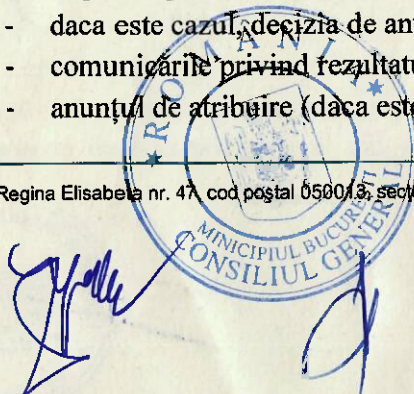 - daca este cazul, decizia de an
- comunicările privind rezultatu
- anunțul de atribuire (daca este
Regina Elisabeta nr. 47, cod poștal 050013, sect
ROMÂNIA
MINICIPIUL BUCUREȘTI
CONSILIUL GENERAL